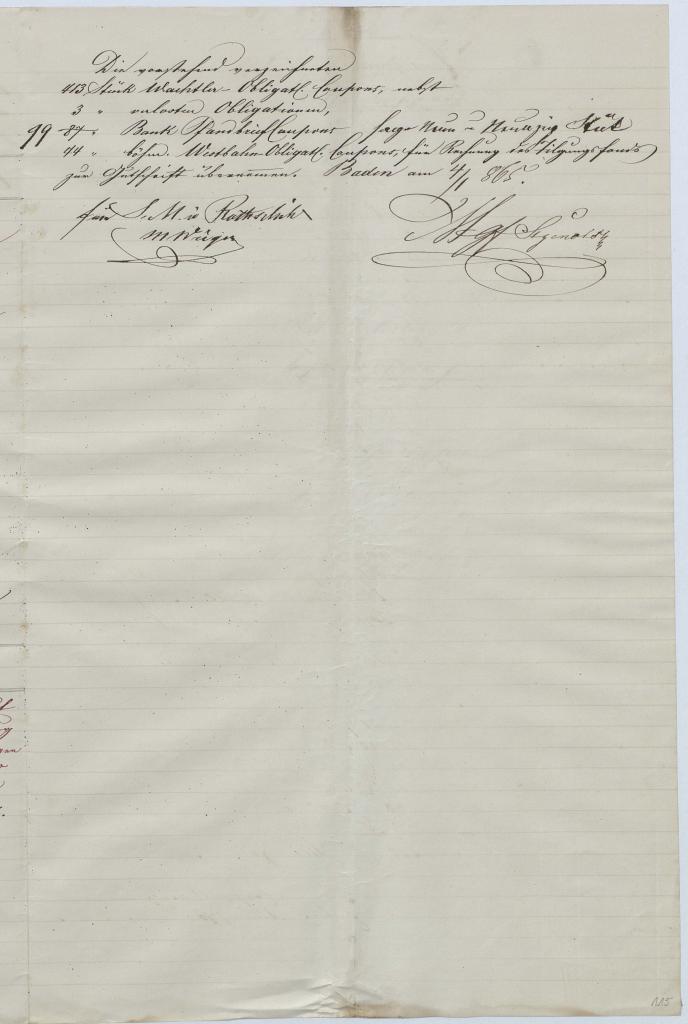 Die vorstehend verzeichneten
413 Stück Waechtler-Obligat. Coupons, nebst
3 " verlosten Obligationen,
99 87 " Bank Pfandbrief Coupons sage Neun u Neunzig Stük
44 " böhm. Westbahn-Obligat. Coupons, für Rechnung des Tilgungsfonds
zur Gutschrift übernommen. Baden am 4/1 865.
für S. M. v Rothschild
115